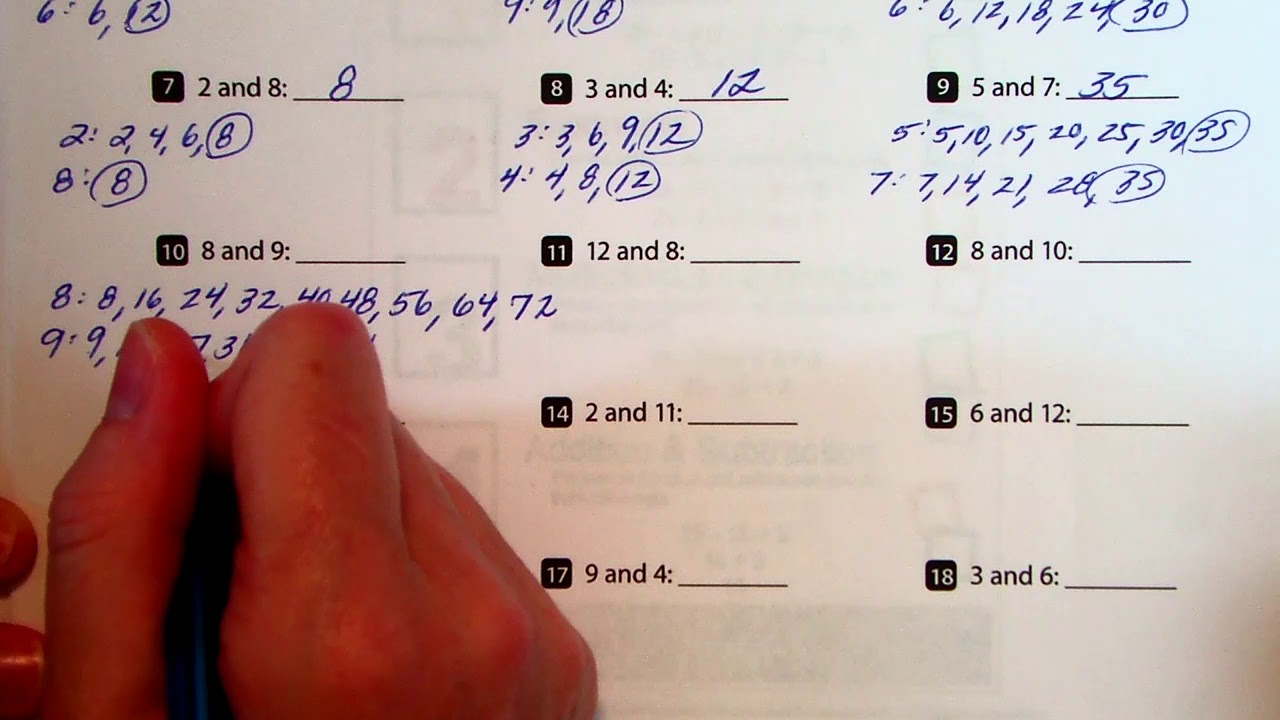 6: 6, 12
9: 9, 18
6: 6, 12, 18, 24, 30
7 2 and 8: 8
8 3 and 4: 12
9 5 and 7: 35
2: 2, 4, 6, 8
3: 3, 6, 9, 12
5: 5, 10, 15, 20, 25, 30, 35
8: 8
4: 4, 8, 12
7: 7, 14, 21, 28, 35
10 8 and 9:
11 12 and 8:
12 8 and 10:
8: 8, 16, 24, 32, 40, 48, 56, 64, 72
9: 9,
14 2 and 11:
15 6 and 12:
Addition & Subtraction
17 9 and 4:
18 3 and 6: